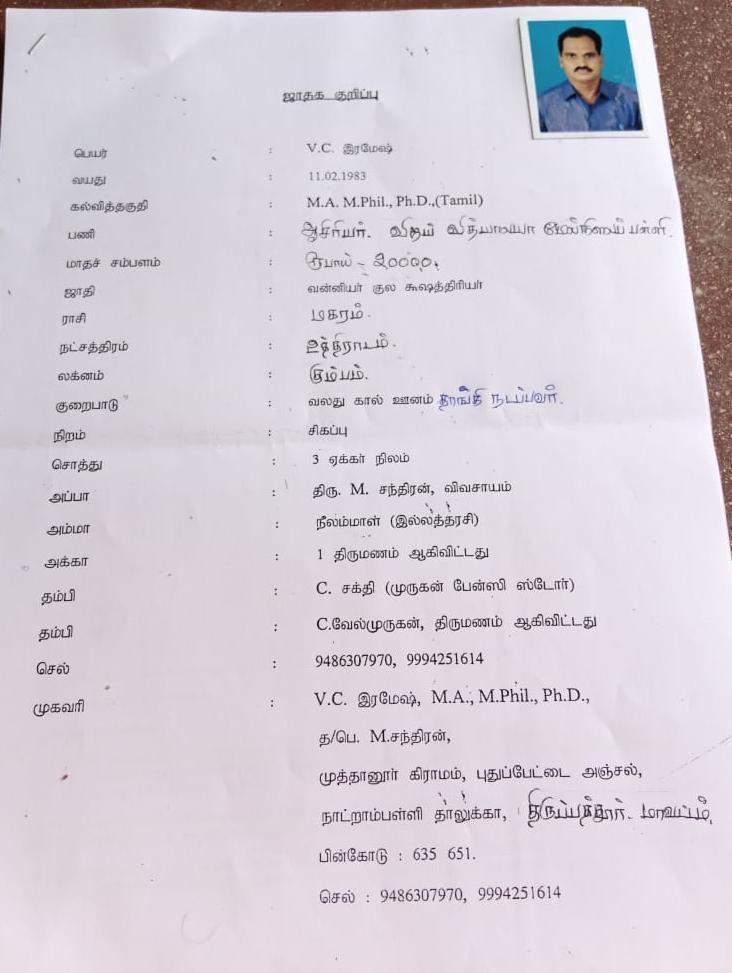 ஜாதக குறிப்பு
பெயர் : V.C. இரமேஷ்
வயது : 11.02.1983
கல்வித்தகுதி : M.A. M.Phil., Ph.D.,(Tamil)
பணி : ஆசிரியர். விஜய் வித்யாலயா மேல்நிலைப் பள்ளி.
மாதச் சம்பளம் : ரூபாய் - 20000.
ஜாதி : வன்னியர் குல கூஷத்திரியர்
ராசி : மகரம்.
நட்சத்திரம் : உத்திராடம்.
லக்னம் : கும்பம்.
குறைபாடு : வலது கால் ஊனம் தாங்கி நடப்பவர்.
நிறம் : சிகப்பு
சொத்து : 3 ஏக்கர் நிலம்
அப்பா : திரு. M. சந்திரன், விவசாயம்
அம்மா : நீலம்மாள் (இல்லத்தரசி)
அக்கா : 1 திருமணம் ஆகிவிட்டது
தம்பி : C. சக்தி (முருகன் பேன்ஸி ஸ்டோர்)
தம்பி : C.வேல்முருகன், திருமணம் ஆகிவிட்டது
செல் : 9486307970, 9994251614
முகவரி : V.C. இரமேஷ், M.A., M.Phil., Ph.D.,
த/பெ. M.சந்திரன்,
முத்தானூர் கிராமம், புதுப்பேட்டை அஞ்சல்,
நாட்றாம்பள்ளி தாலுக்கா, திருப்பத்தூர். மாவட்டம்.
பின்கோடு : 635 651.
செல் : 9486307970, 9994251614